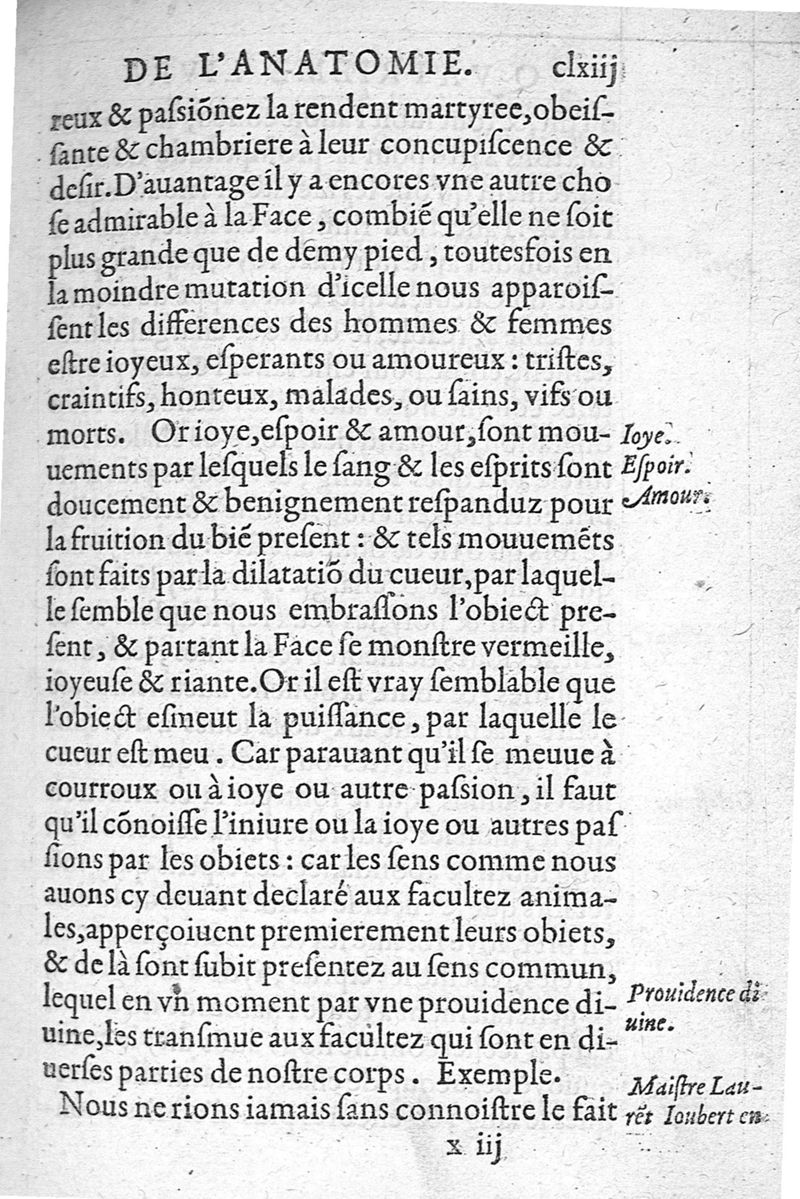 DE L'ANATOMIE. clxiij
reux & paſsiõnez la rendent martyree,obeiſ-
ſante & chambriere à leur concupiſcence &
deſir.D'auantage il y a encores vne autre cho
ſe admirable à la Face, combiẽ qu'elle ne ſoit
plus grande que de demy pied, toutesfois en
la moindre mutation d'icelle nous apparoiſ-
ſent les differences des hommes & femmes
eſtre ioyeux, eſperants ou amoureux : triſtes,
craintifs, honteux, malades, ou ſains, vifs ou
morts. Or ioye,eſpoir & amour,ſont mou-
uements par leſquels le ſang & les eſprits ſont
doucement & benignement reſpanduz pour
la fruition du biẽ preſent : & tels mouuemẽts
ſont faits par la dilatatiõ du cueur,par laquel-
le ſemble que nous embraſſons l'obiect pre-
ſent, & partant la Face ſe monſtre vermeille,
ioyeuſe & riante.Or il eſt vray ſemblable que
l'obiect eſmeut la puiſſance, par laquelle le
cueur eſt meu. Car parauant qu'il ſe meuue à
courroux ou à ioye ou autre paſsion, il faut
qu'il cõnoiſſe l'iniure ou la ioye ou autres paſ
ſions par les obiets : car les ſens comme nous
auons cy deuant declaré aux facultez anima-
les,apperçoiuent premierement leurs obiets,
& de là ſont ſubit preſentez au ſens commun,
lequel en vn moment par vne prouidence di-
uine,les tranſmue aux facultez qui ſont en di-
uerſes parties de noſtre corps. Exemple.
Nous ne rions iamais ſans connoiſtre le fait
x iij
Ioye.
Eſpoir.
Amour.
Prouidence di
uine.
Maiſtre Lau-
rẽt Ioubert en